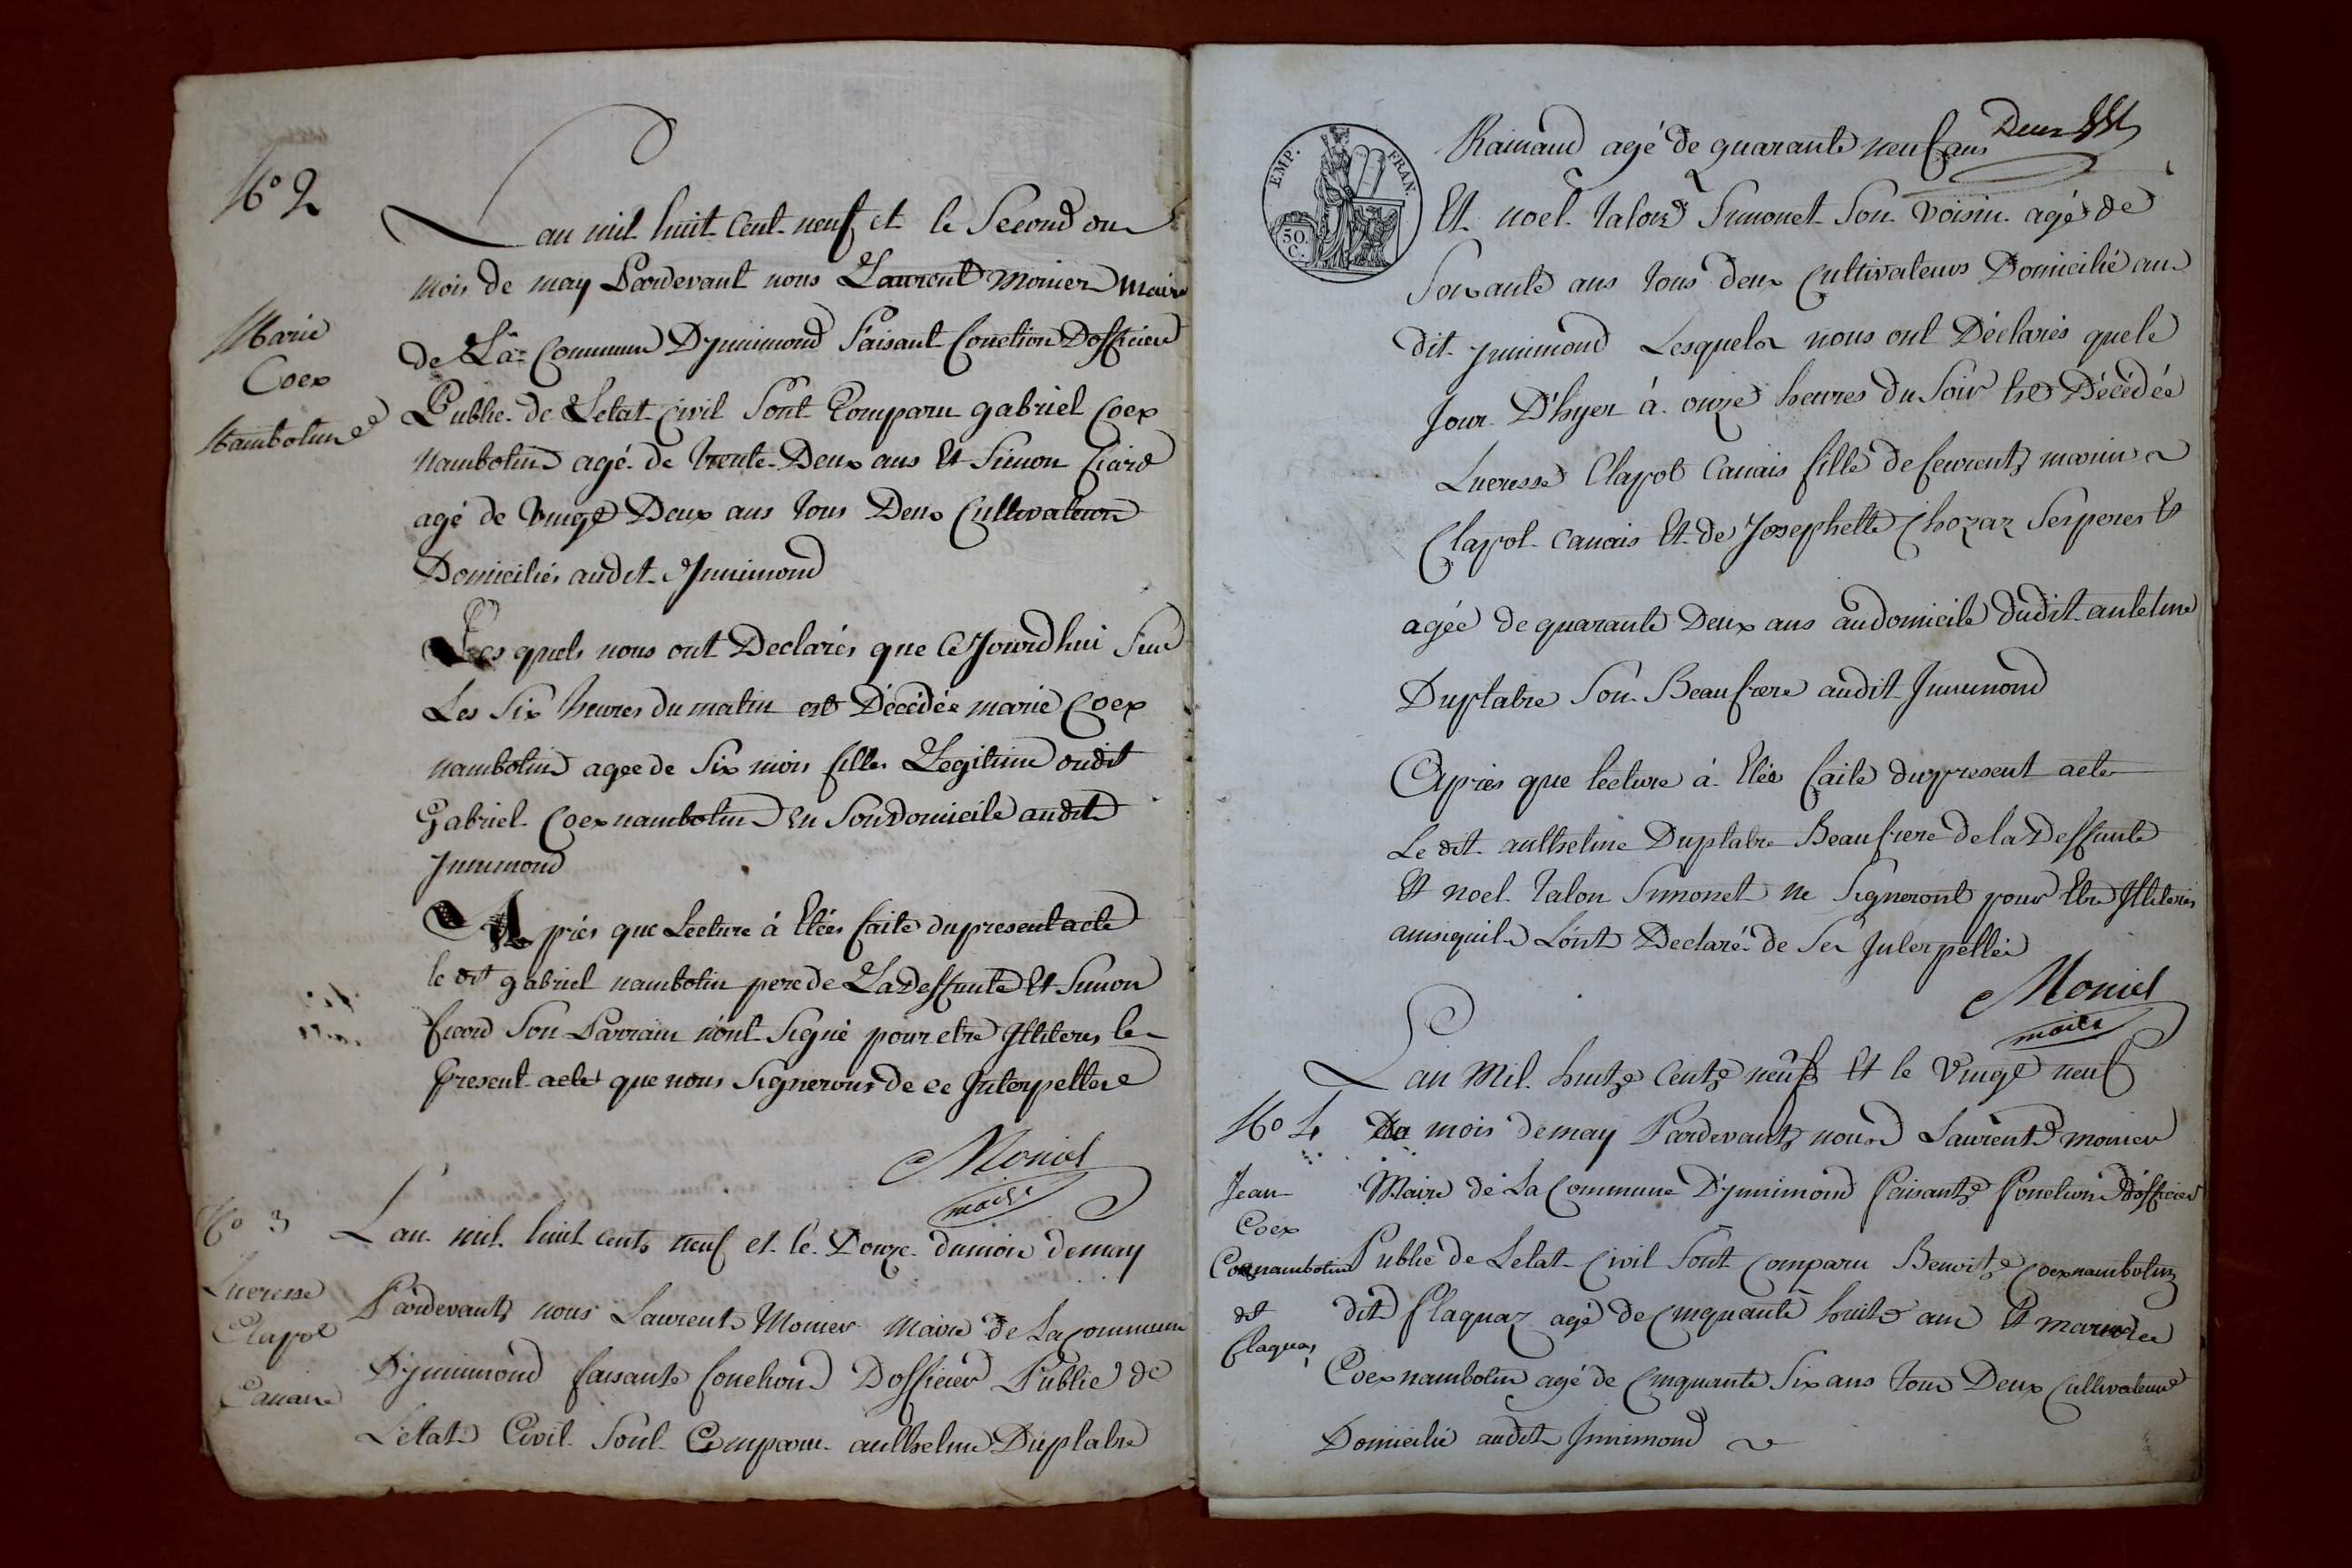 No 2
Marie
Coex
Nambotin
Lan mil huit Cent neuf et le Second du
mois de may Pardevant nous Laurent Monier Maire
de La Commune Dynnimond Faisant fonction Dofficier
Public de Letat Civil Sont Comparu gabriel Coex
Nambotin agé de trente Deux ans Et Simon ficard
agé de Vingt Deux ans tous Deux Cultivateurs
Domiciliés audit Jnnimond
Les quels nous ont Declarés que Cejourdhui Sur
Les Six heures du matin est Décédée marie Coex
nambotin agee de Six mois fille Legitime dudit
Gabriel Coex nambotin en Son domicile audit
Jnnimond
Aprés que Lecture à Etées faite du present acte
le dit gabriel nambotin pere de La deffunte Et Simon
ficard Son Parrain nont Signé pour etre Jlliteres le
present acte que nous Signerons de ce Jnterpellere
Moniel
maire
No 3
Lucresse
Clapot
Canaie
Lan mil huit cents neuf et le Douze du mois de may
Pardevant nous Laurent Monier Maire de La commune
Dynnimond faisante fonction Dofficier Public de
Letat Civil Sont Comparu anthelme Duplatre
Deux
EMP. FRAN.
50. C.
Rainaud agé de quarante neuf ans
Et noel talon Simonet Son Voisin agé de
Soixante ans tous deux Cultivateurs Domicilié au
dit ynnimond Lesquels nous ont Déclarés que le
Jour D'hyer à onze heures du Soir est Décédée
Lucresse Clapot Canais fille de Laurent marin
Clapot Canais Et de Josephette Chozaz Ses peres Et
agée de quarante Deux ans au domicile dudit antelme
Duplatre Son Beaufrere audit Jnnimond
Aprés que lecture à Etée faite du present acte
Le dit anthelme Duplatre Beaufrere de la Deffunte
Et noel talon Simonet ne Signeront pour Etre Jlliterés
ainsi quil Lont Declaré de Ser Jnterpellée
Moniel
maire
No 4
Jean
Coex
Coexnambotin
dit
flaquaz
Lan Mil huit Cent neuf Et le Vingt neuf
Du mois de may Pardevant nous Laurent monier
Maire de La Commune D'ynnimond faisante fonction D'officier
Public de Letat Civil Sont Comparu Benoit Coexnambotin
dit flaquaz agé de Cinquante huit ans Et
Coexnambotin agé de Cinquante Six ans tous Deux Cultivateurs
Domicilié audit Jnnimond